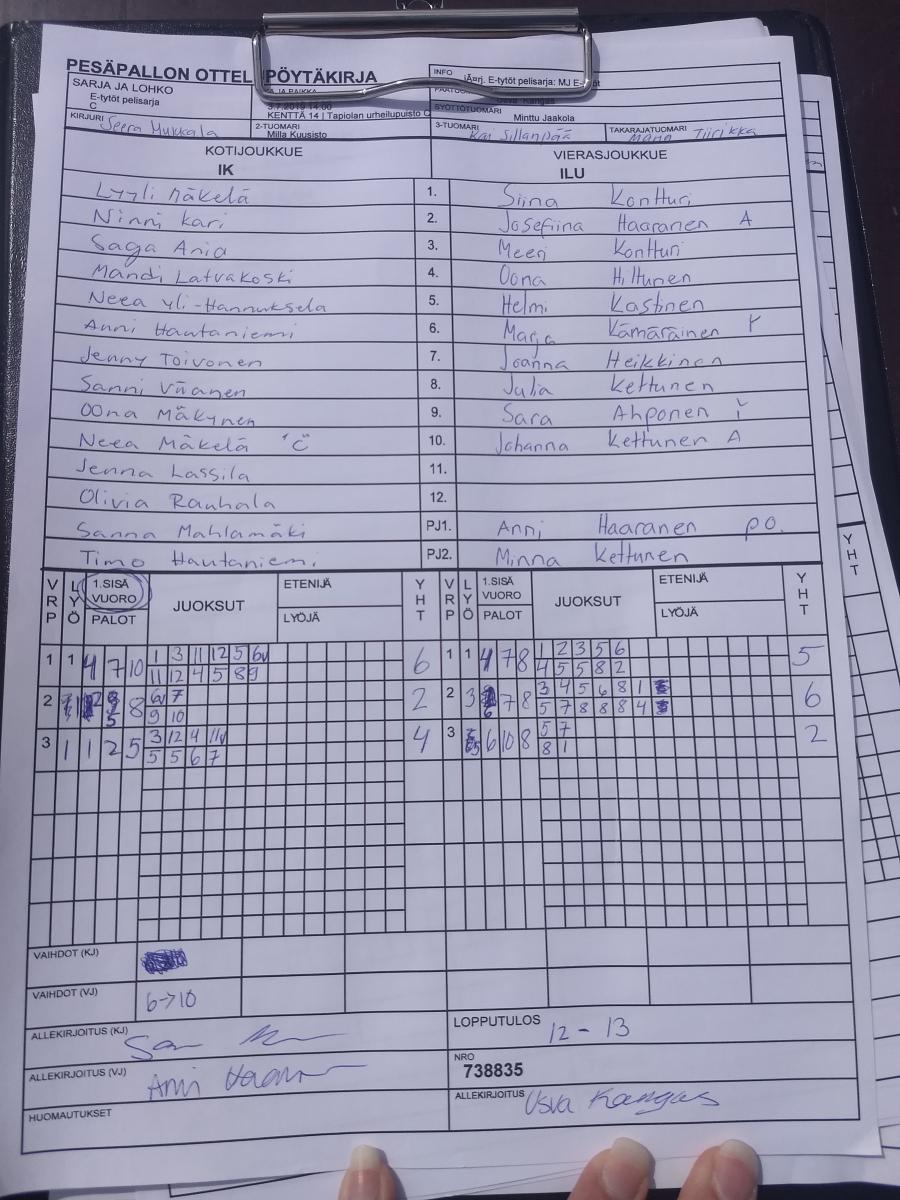 PESÄPALLON OTTEL PÖYTÄKIRJA
SARJA JA LOHKO
E-tytöt pelisarja
C
3.7.2019 14.00
KENTTÄ 14 | Tapiolan urheilupuisto C
INFO
jÄrj. E-tytöt pelisarja: MJ E-
SYÖTTÖTUOMARI Minttu Jaakola
KIRJURI Seera Mukkala
2-TUOMARI Milla Kuusisto
3-TUOMARI Kai Sillanpää
TAKARAJATUOMARI Tiirikka
KOTIJOUKKUE VIERASJOUKKUE
IK ILU
Lyyli Mäkelä 1. Siina Kontturi
Ninni Kari 2. Josefiina Haaranen A
Saga Ania 3. Meeri Kontturi
Mandi Latvakoski 4. Oona Hiltunen
Neea Yli-Hannuksela 5. Helmi Kastinen
Anni Hautaniemi 6. Marja Kämäräinen
Jenny Toivonen 7. Joanna Heikkinen
Sanni Väänen 8. Julia Kettunen
Oona Mäkynen 9. Sara Ahponen
Neea Mäkelä "C" 10. Johanna Kettunen A
Jenna Lassila 11.
Olivia Rauhala 12.
Sanna Mahlamäki PJ1. Anni Haaranen p.o.
Timo Hautaniemi PJ2. Minna Kettunen
VRP LYÖ 1.SISÄ VUORO PALOT JUOKSUT ETENIJÄ LYÖJÄ YHT VRP LYÖ 1.SISÄ VUORO PALOT JUOKSUT ETENIJÄ LYÖJÄ YHT
1 1 4 7 10 1 3 11 12 5 6v 6 1 1 4 7 8 1 2 3 5 6 5
11 12 4 5 8 9 4 5 5 8 2
2 8 6v 7 2 2 3 7 8 3 4 5 6 8 1 6
9 10 5 7 8 8 8 4
3 1 1 2 5 3 12 4 11v 4 3 6 10 8 5 7 2
5 5 6 7 8 1
VAIHDOT (KJ)
VAIHDOT (VJ) 6→10
ALLEKIRJOITUS (KJ)
LOPPUTULOS 12 - 13
ALLEKIRJOITUS (VJ) Anni
NRO
738835
HUOMAUTUKSET
ALLEKIRJOITUS Usva Kangas
YHT